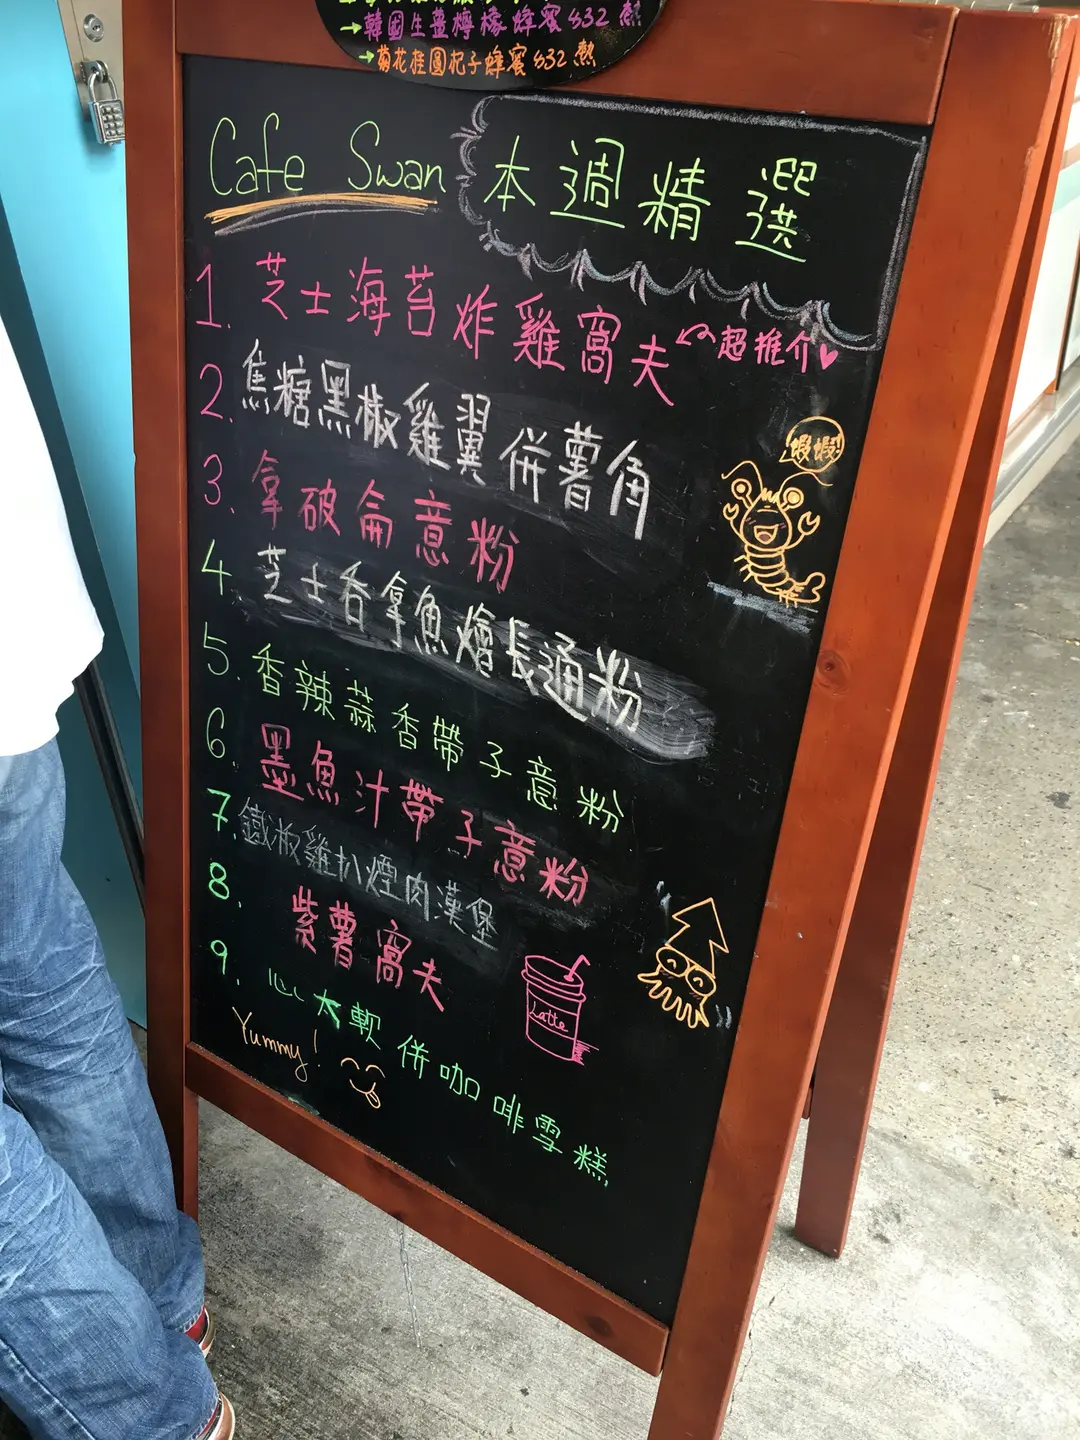 →韓國生薑檸檬蜂蜜 $32 熱
→菊花桂圓杞子蜂蜜 $32 熱
Cafe Swan 本週精選
1. 芝士海苔炸雞窩夫 超推介
2. 焦糖黑椒雞翼併薯角
蝦蝦
3. 拿破侖意粉
4. 芝士吞拿魚燴長通粉
5. 香辣蒜香帶子意粉
6. 墨魚汁帶子意粉
7. 鐵椒雞扒煙肉漢堡
8. 紫薯窩夫
Latte
9. 心太軟併咖啡雪糕
Yummy!